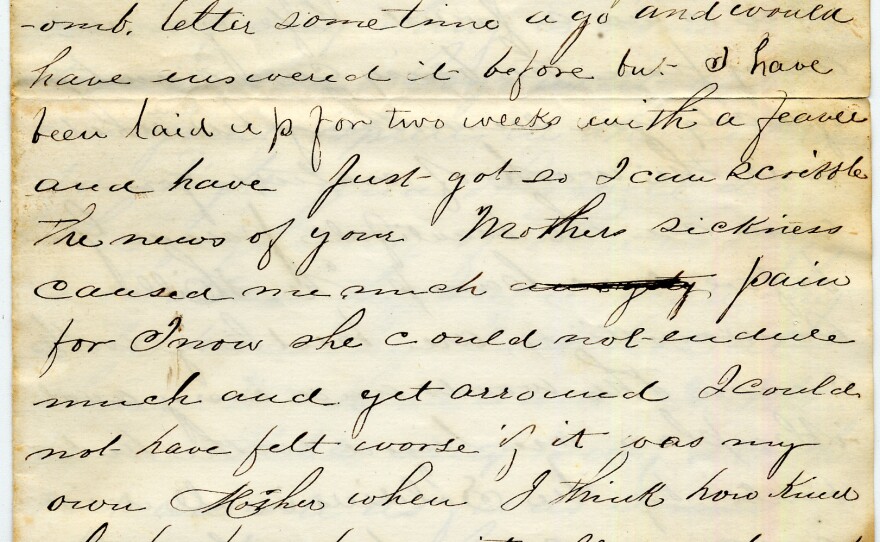 -omb. letter sometime ago and would
have enswered it before but I have
been laid up for two weeks with a feaver
and have Just got so I can scribble
The news of your Mothers sickness
caused me much anxiety pain
for I now she could not endure
much and yet arround I could
not have felt worse if it was my
own Mother when I think how kind